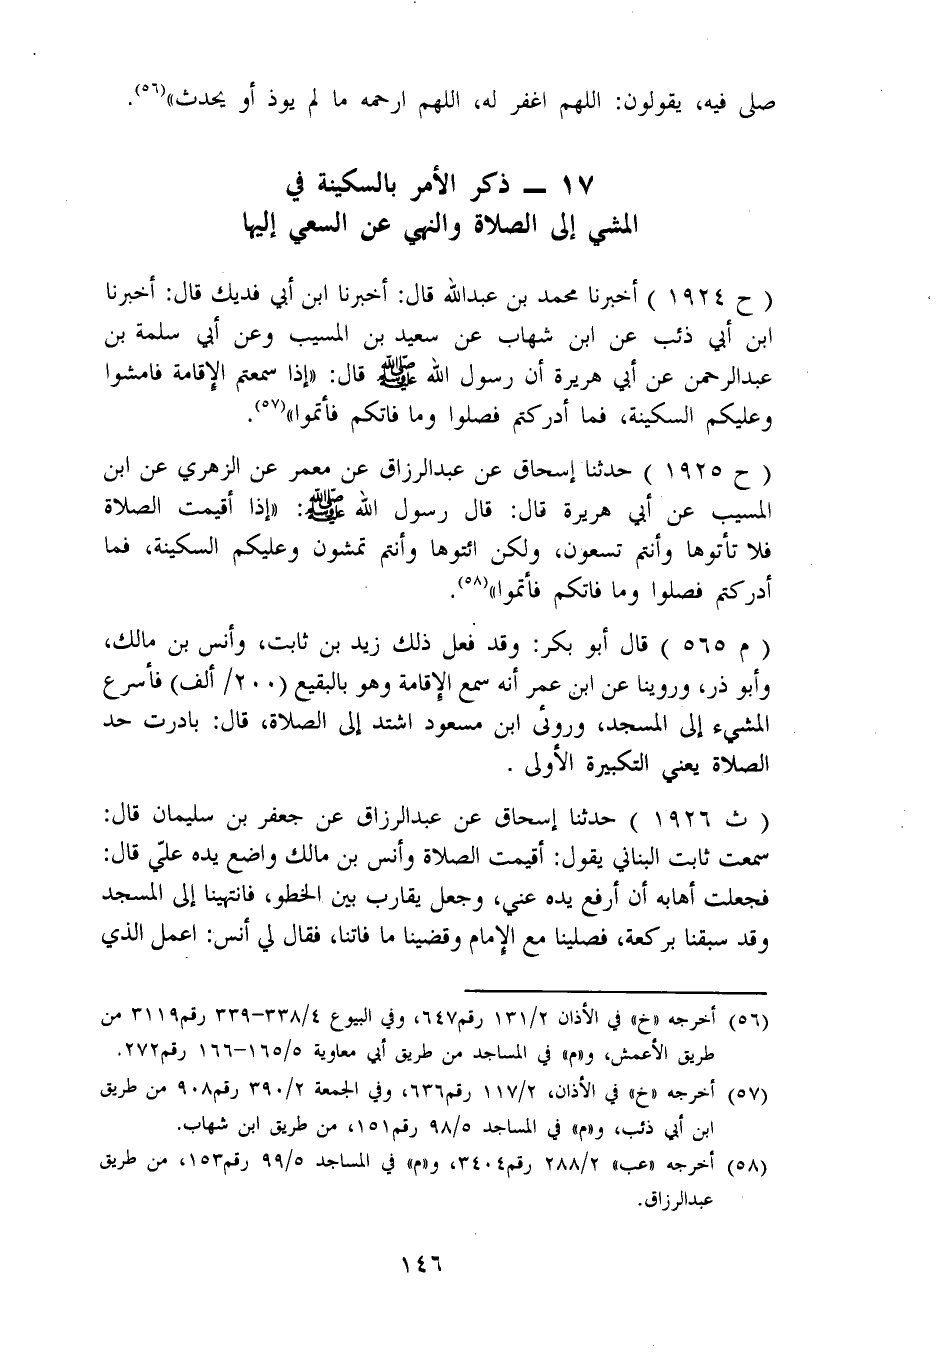 صلى فيه، يقولون: اللهم اغفر له، اللهم ارحمه ما لم يوذ أو يحدث»(٥٦).
١٧ ـ ذكر الأمر بالسكينة في
المشي إلى الصلاة والنهي عن السعي إليها
( ح ١٩٢٤ ) أخبرنا محمد بن عبدالله قال: أخبرنا ابن أبي فديك قال: أخبرنا
ابن أبي ذئب عن ابن شهاب عن سعيد بن المسيب وعن أبي سلمة بن
عبدالرحمن عن أبي هريرة أن رسول الله ﷺ قال: «إذا سمعتم الإقامة فامشوا
وعليكم السكينة، فما أدركتم فصلوا وما فاتكم فأتموا»(٥٧).
( ح ١٩٢٥ ) حدثنا إسحاق عن عبدالرزاق عن معمر عن الزهري عن ابن
المسيب عن أبي هريرة قال: قال رسول الله ﷺ: «إذا أقيمت الصلاة
فلا تأتوها وأنتم تسعون، ولكن ائتوها وأنتم تمشون وعليكم السكينة، فما
أدركتم فصلوا وما فاتكم فأتموا»(٥٨).
( م ٥٦٥ ) قال أبو بكر: وقد فعل ذلك زيد بن ثابت، وأنس بن مالك،
وأبو ذر، وروينا عن ابن عمر أنه سمع الإقامة وهو بالبقيع (٢٠٠/ ألف) فأسرع
المشيء إلى المسجد، وروىٔ ابن مسعود اشتد إلى الصلاة، قال: بادرت حد
الصلاة يعني التكبيرة الأولى .
( ث ١٩٢٦ ) حدثنا إسحاق عن عبدالرزاق عن جعفر بن سليمان قال:
سمعت ثابت البناني يقول: أقيمت الصلاة وأنس بن مالك واضع يده عليّ قال:
فجعلت أهابه أن أرفع يده عني، وجعل يقارب بين الخطو، فانتهينا إلى المسجد
وقد سبقنا بركعة، فصلينا مع الإمام وقضينا ما فاتنا، فقال لي أنس: اعمل الذي
(٥٦) أخرجه «خ» في الأذان ١٣١/٢ رقم٦٤٧، وفي البيوع ٣٣٨/٤–٣٣٩ رقم٣١١٩ من
طريق الأعمش، و«م» في المساجد من طريق أبي معاوية ١٦٥/٥–١٦٦ رقم٢٧٢.
(٥٧) أخرجه «خ» في الأذان، ١١٧/٢ رقم٦٣٦، وفي الجمعة ٣٩٠/٢ رقم٩٠٨ من طريق
ابن أبي ذئب، و«م» في المساجد ٩٨/٥ رقم١٥١، من طريق ابن شهاب.
(٥٨) أخرجه «عب» ٢٨٨/٢ رقم٣٤٠٤، و«م» في المساجد ٩٩/٥ رقم١٥٣، من طريق
عبدالرزاق.
١٤٦